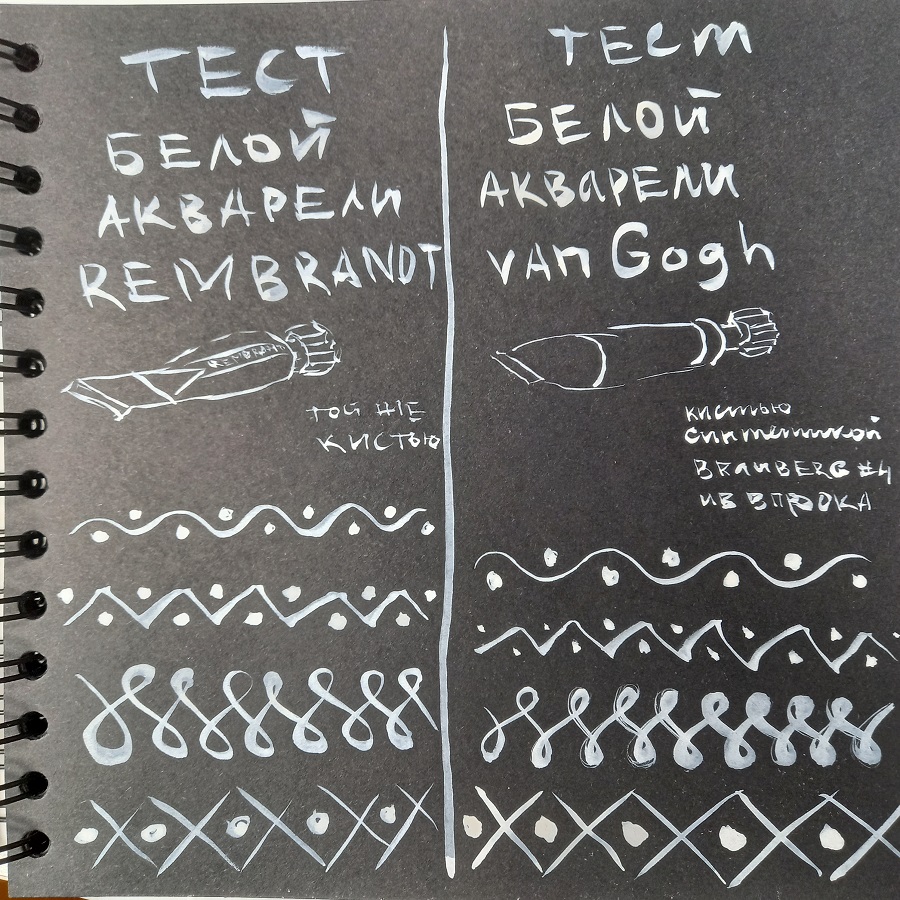 ТЕСТ
БЕЛОЙ
АКВАРЕЛИ
REMBRANDT
REMBRANDT
ТОЙ ЖЕ
КИСТЬЮ
ТЕСТ
БЕЛОЙ
АКВАРЕЛИ
van Gogh
кистью
синтетикой
BRAUBERG #4
ИЗ ВПРОКА